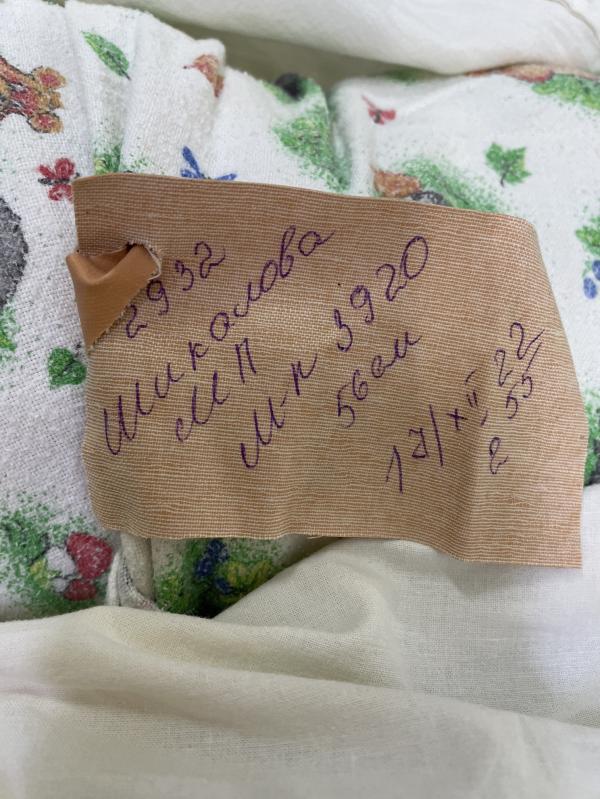 2932
Шикалова
М П
М-к 3920
56 см
17/XII 22 55
2